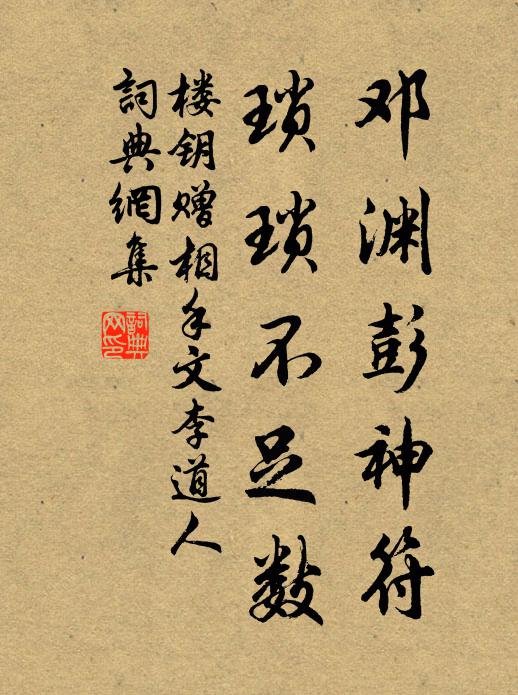 邓渊彭神符
琐琐不足数
楼钥赠相手文李道人
詞典網集
詞典網印